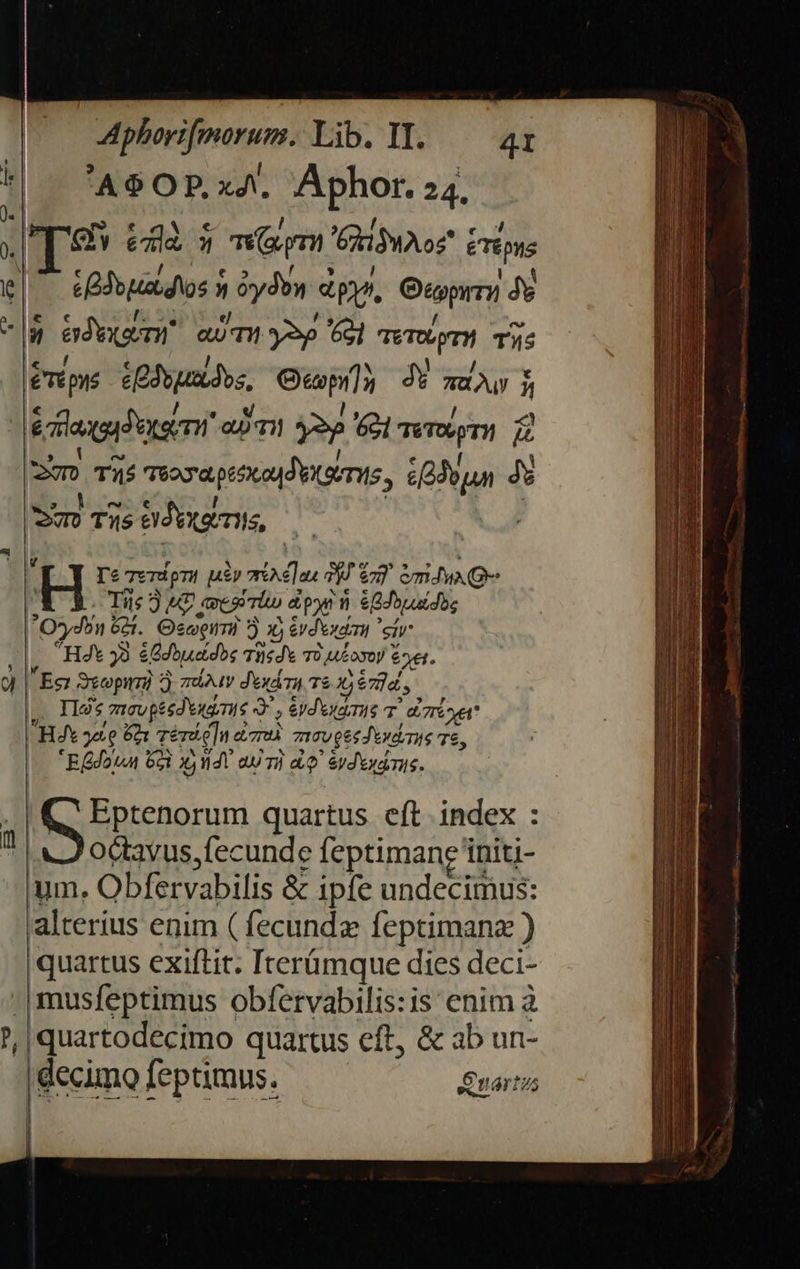 Aphoriſmorum. Lib. II. 41
ἈΦΟΡ. κδʹ. Aphor. 24.
Τῶν ἑπτὰ ἡ τετάρτη ἐπίδηλος· ἑτέρης
ἑβδομάδος ἡ ὀγδόη ἀρχή. Θεωρητὴ δὲ
ἡ ἑνδεκάτη· αὕτη γάρ ἐστι τετάρτη τῆς
ἑτέρης ἑβδομάδος. Θεωρητὴ δὲ πάλιν ἡ
ἑπτακαιδεκάτη· αὕτη γάρ ἐστι τετάρτη μὲν
ἀπὸ τῆς τεσσαρεσκαιδεκάτης, ἑβδόμη δὲ
ἀπὸ τῆς ἑνδεκάτης.
Ἡ Γε τετάρτη μὲν πέλεται τῶν ἑπτ' ἐπίδηλος
Τῆς δὲ μετὰ ταύτην ἀρχὴ ἡ ἑβδομάδος
Ὀγδόη ἐστί. Θεωρητὴ δὲ καὶ ἑνδεκάτη 'στίν·
Ἥδε γὰρ ἑβδομάδος τῆσδε τὸ μέσσον ἔχει.
Ἔστι θεωρητὴ δὲ πάλιν δεκάτη τε καὶ ἑπτά,
Ἥδε γάρ ἐστι τετάρτη ἀπαὶ πισυρεσδεκάτης τε,
Ἑβδόμη ἐστὶ καὶ ἥδ' αὐτὴ ἀφ' ἑνδεκάτης.
SEptenorum quartus eſt index :
octavus, ſecundę ſeptimanę initi-
um. Obſervabilis & ipſe undecimus:
alterius enim ( ſecundæ ſeptimanæ )
quartus exiſtit. Iterúmque dies deci-
musſeptimus obſervabilis: is enim à
quartodecimo quartus eſt, & ab un-
decimo ſeptimus.
Quartus